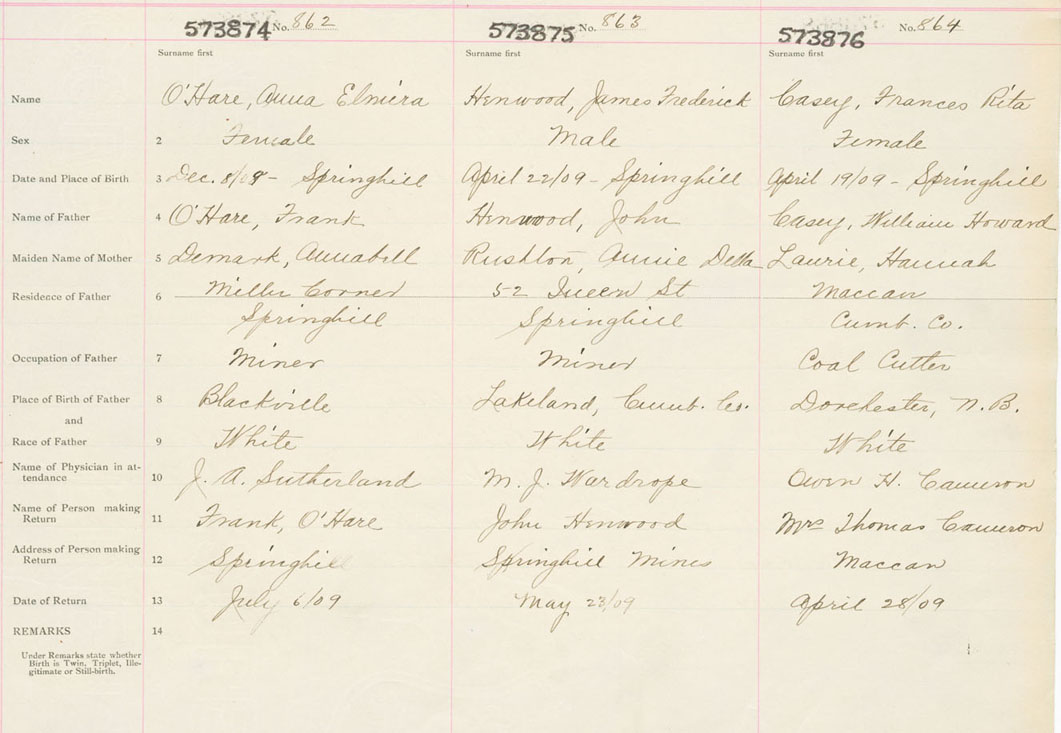 573874 No. 862 573875 No. 863 573876 No. 864
Surname first Surname first Surname first
Name O'Hare, Anna Elmira Henwood, James Frederick Casey, Frances Rita
Sex 2 Female Male Female
Date and Place of Birth 3 Dec. 8/08 - Springhill April 22/09 - Springhill April 19/09 - Springhill
Name of Father 4 O'Hare, Frank Henwood, John Casey, William Howard
Maiden Name of Mother 5 Demark, Annabell Rushton, Annie Della Laurie, Hannah
Residence of Father 6 Miller Corner 52 Queen St Maccan
Springhill Springhill Cumb. Co.
Occupation of Father 7 Miner Miner Coal Cutter
Place of Birth of Father 8 Blackville Lakeland, Cumb. Co. Dorchester, N.B.
and
Race of Father 9 White White White
Name of Physician in at-
tendance 10 J. A. Sutherland M. J. Wardrope Owen H. Cameron
Name of Person making
Return 11 Frank, O'Hare John Henwood Mrs Thomas Cameron
Address of Person making
Return 12 Springhill Springhill Mines Maccan
Date of Return 13 July 6/09 May 23/09 April 28/09
REMARKS 14
Under Remarks state whether
Birth is Twin, Triplet, Ille-
gitimate or Still-birth.